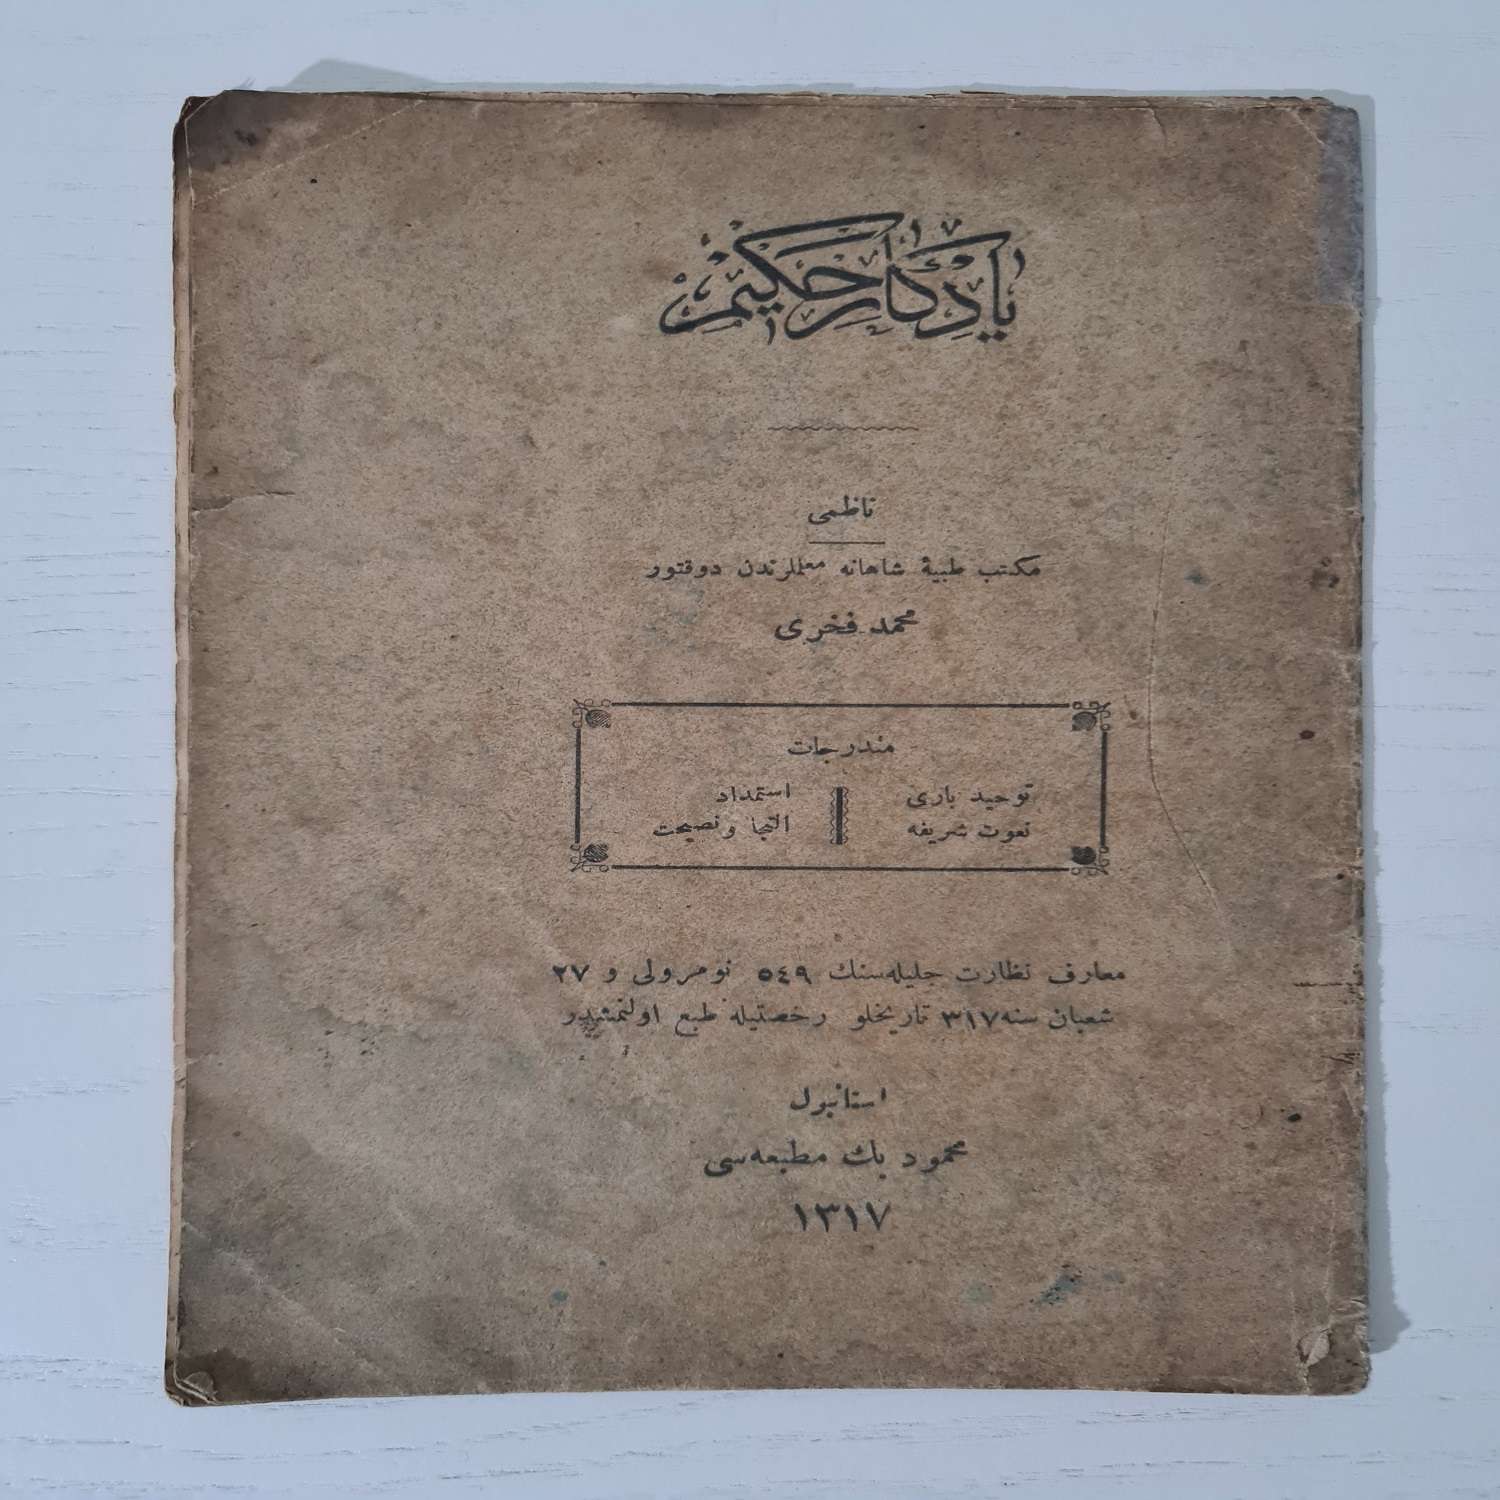 يادكار حكيم
ناظمى
مكتب طبيۀ شاهانه معلملرندن دوقتور
محمد فخرى
مندرجات
توحيد بارى
نعوت شريفه
استمداد
التجا ونصيحت
معارف نظارت جليله‌سنك ٥٤٩ نومرولى و ٢٧
شعبان سنه ٣١٧ تاريخلو رخصتيله طبع اولنمشدر
استانبول
محمود بك مطبعه‌سى
١٣١٧